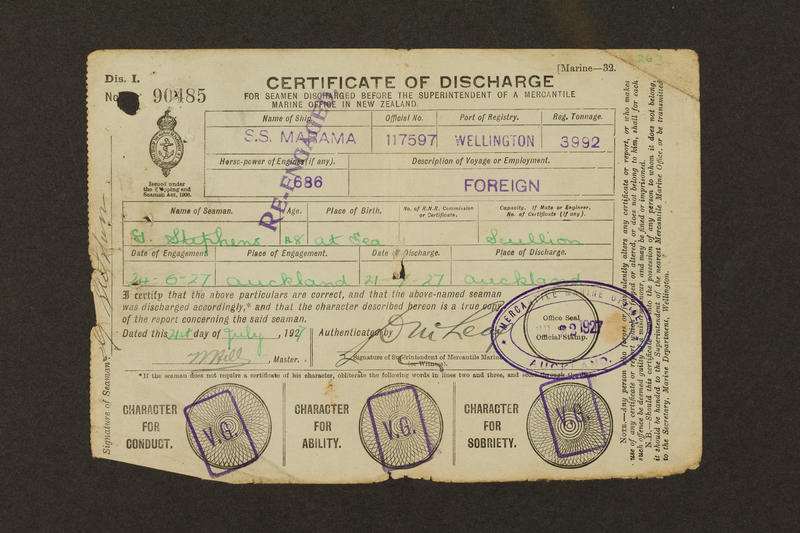 Dis. I.
[Marine—32.
263
No. 90485
CERTIFICATE OF DISCHARGE
FOR SEAMEN DISCHARGED BEFORE THE SUPERINTENDENT OF A MERCANTILE
MARINE OFFICE IN NEW ZEALAND.
Issued under
the Shipping and
Seaman Act, 1908.
Name of Ship. Official No. Port of Registry. Reg. Tonnage.
S.S. MARAMA 117597 WELLINGTON 3992
Horse-power of Engines (if any). Description of Voyage or Employment.
686 FOREIGN
RE-ENGAGED
Name of Seaman. Age. Place of Birth. No. of R.N.R. Commission or Certificate. Capacity. If Mate or Engineer, No. of Certificate (if any).
G. Stephens 48 at Sea Scullion
Date of Engagement. Place of Engagement. Date of Discharge. Place of Discharge.
24-6-27 Auckland 21-7-27 Auckland
I certify that the above particulars are correct, and that the above-named seaman
was discharged accordingly,* and that the character described hereon is a true copy
of the report concerning the said seaman.
Dated this 21st day of July, 1927 Authenticated by
, Master.
Signature of Superintendent of Mercantile Marine
(or Witness).
MERCANTILE MARINE OFFICE
Office Seal
22 1927
Official Stamp.
AUCKLAND.
*If the seaman does not require a certificate of his character, obliterate the following words in lines two and three, and score through the
CHARACTER
FOR
CONDUCT.
V.G.
CHARACTER
FOR
ABILITY.
V.G.
CHARACTER
FOR
SOBRIETY.
V.G.
Signature of Seaman
NOTE.—Any person who forges or fraudulently alters any certificate or report, or who makes
use of any certificate or report which is forged or altered, or does not belong to him, shall for each
such offence be deemed guilty of a misdemeanour, and may be fined or imprisoned.
N.B.—Should this certificate come into the possession of any person to whom it does not belong,
it should be handed to the Superintendent of the nearest Mercantile Marine Office, or be transmitted
to the Secretary, Marine Department, Wellington.